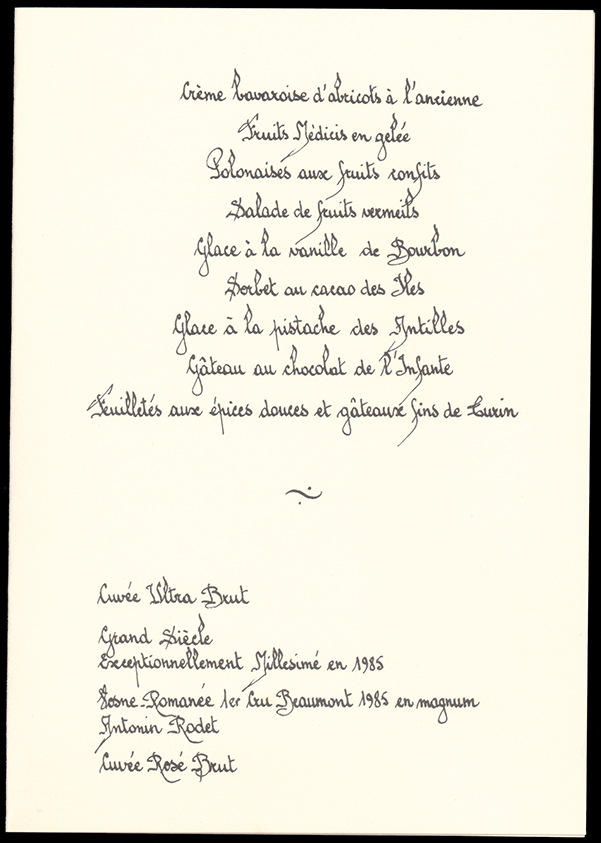 Crème bavaroise d'abricots à l'ancienne
Fruits Médicis en gelée
Polonaises aux fruits confits
Salade de fruits vermeils
Glace à la vanille de Bourbon
Sorbet au cacao des Iles
Glace à la pistache des Antilles
Gâteau au chocolat de l'Infante
Feuilletés aux épices douces et gâteaux fins de Turin
Cuvée Ultra Brut
Grand Siècle
Exceptionnellement Millesimé en 1985
Vosne-Romanée 1er Cru Beaumont 1985 en magnum
Antonin Rodet
Cuvée Rosé Brut